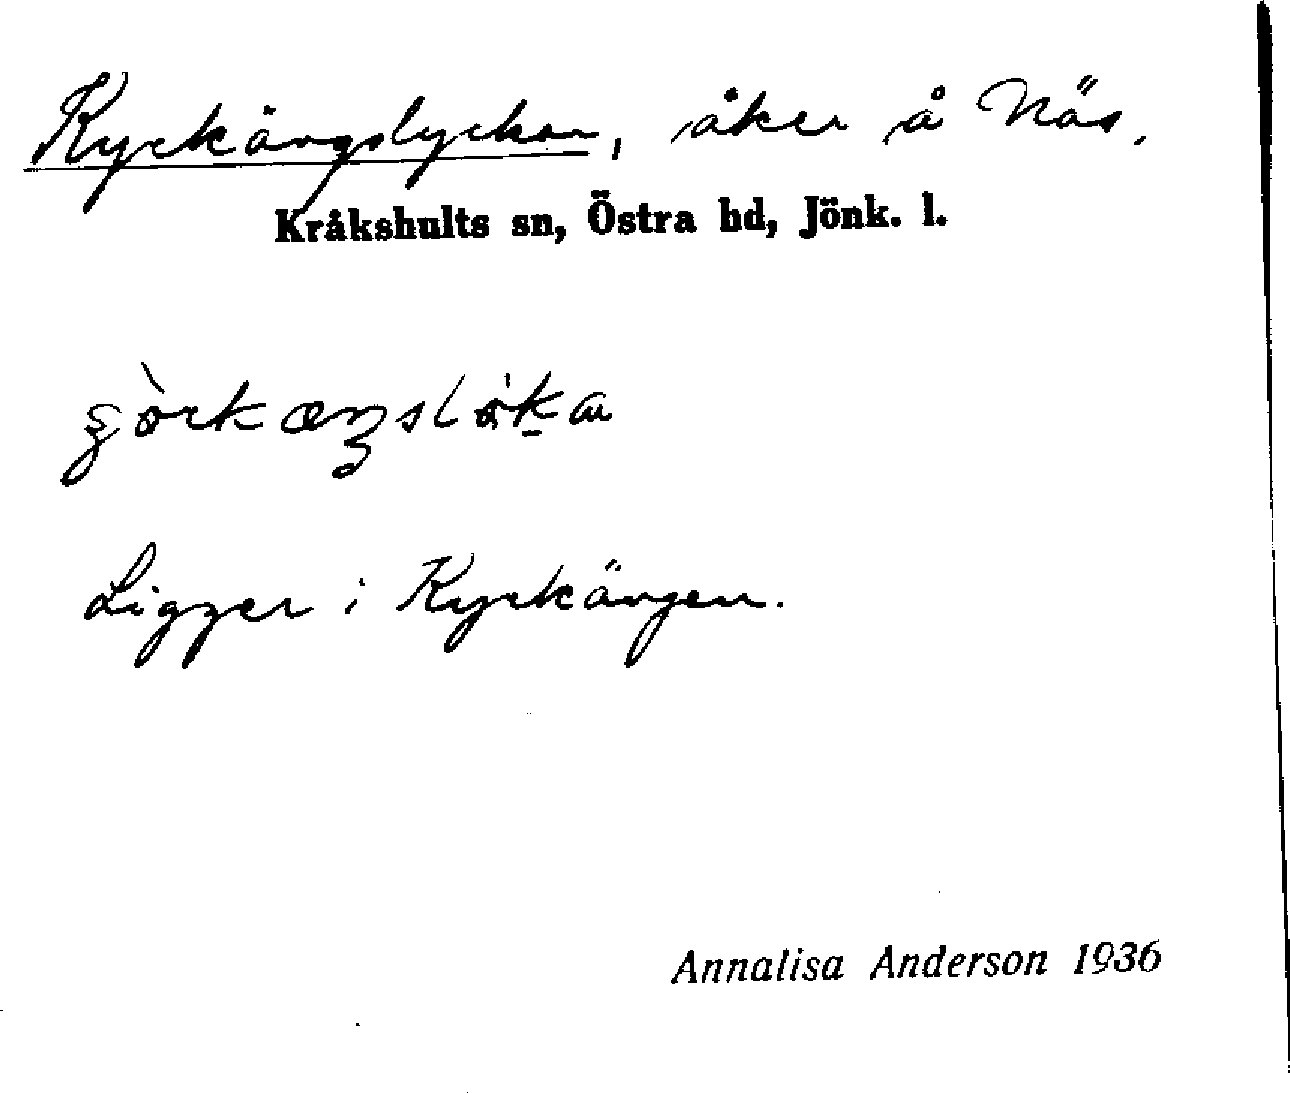 Kyrkängslyckan, åker å Näs.
Kråkshults sn, Östra hd, Jönk. l.
Ligger i Kyrkängen.
Annalisa Anderson 1936